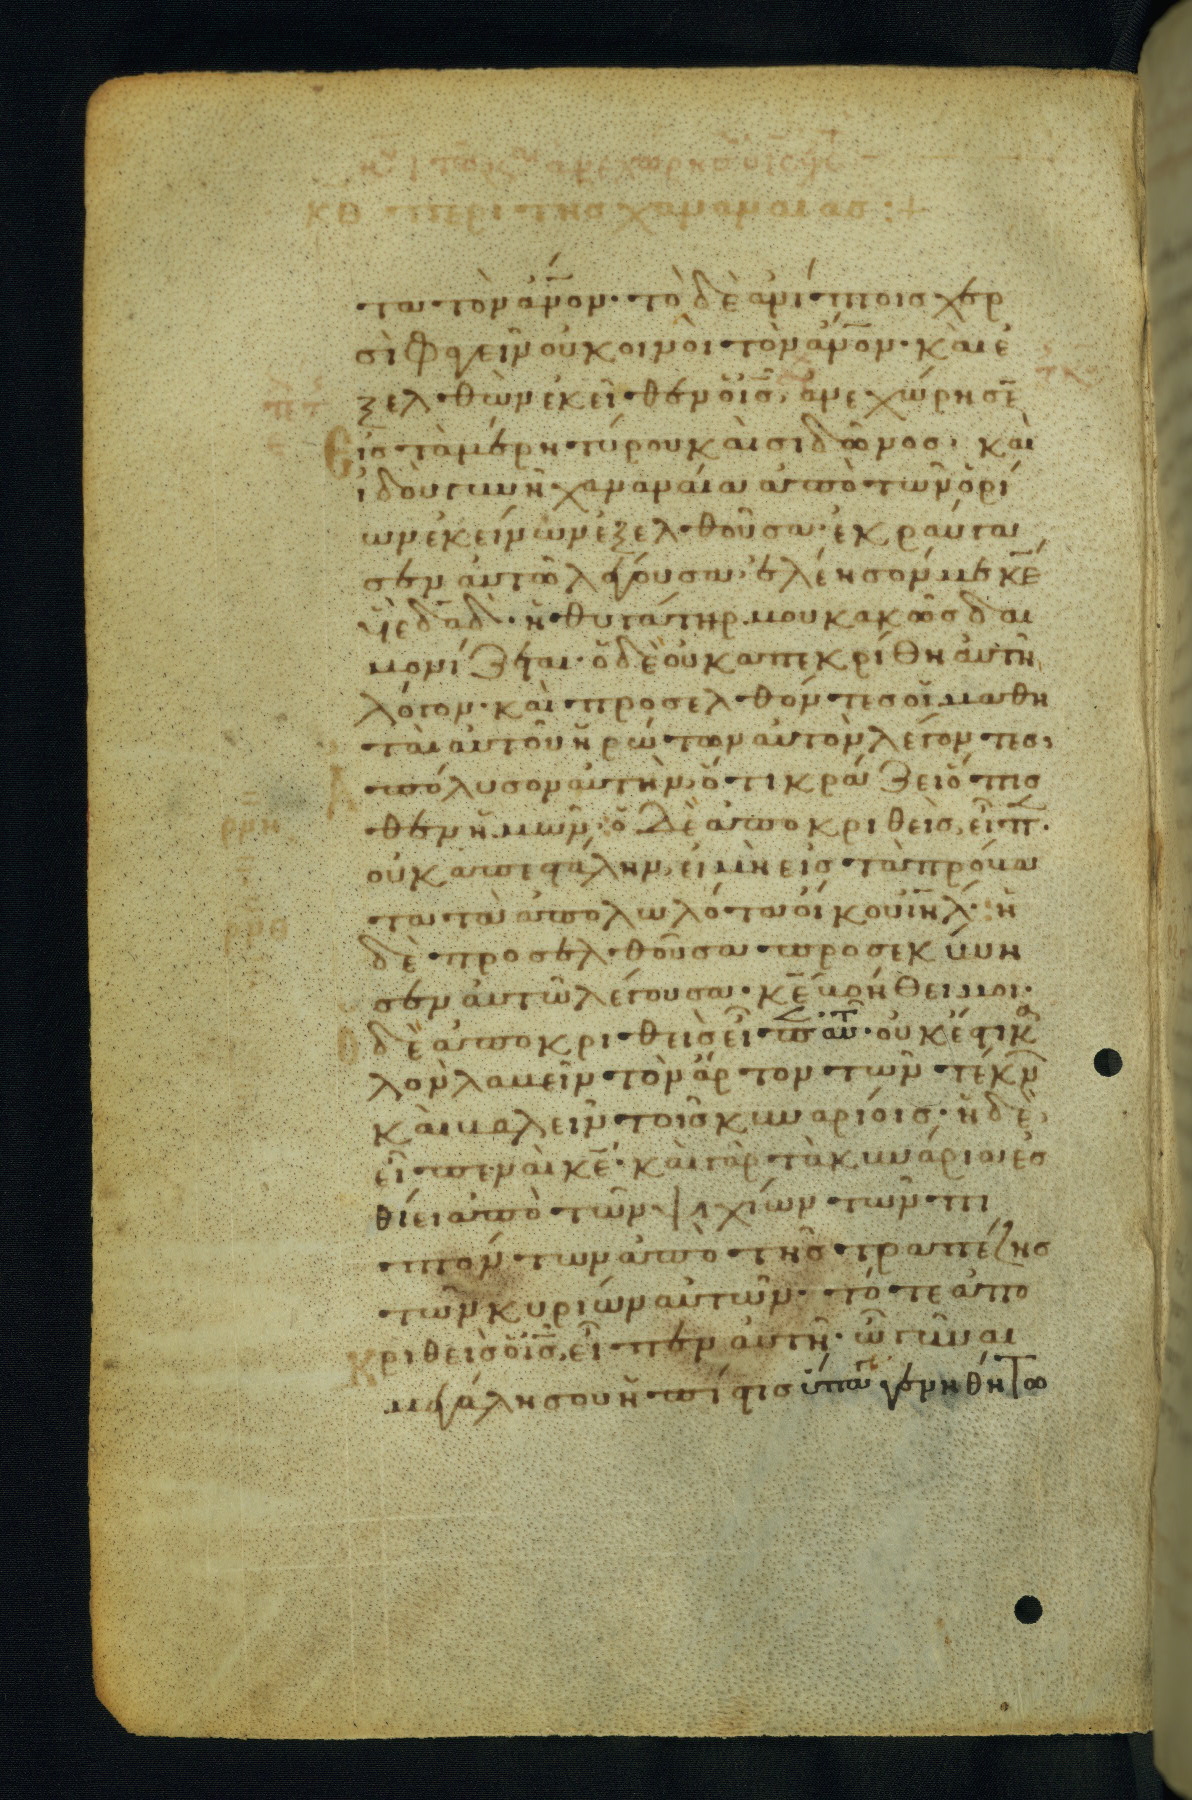 κθ περι της χαναναιας :+
ται τὸν ἄνον· τὸ δὲ ἀνίπτοις χερ
σὶ φαγεῖν οὐ κοινοῖ τὸν ἄνον· καὶ ἐ
ξελθὼν ἐκεῖθεν ὁ ις, ἀνεχώρησεν
εἰς τὰ μέρη τύρου καὶ σιδῶνος, καὶ
ἰδοὺ γυνὴ χαναναία ἀπὸ τῶν ὁρί
ων ἐκείνων ἐξελθοῦσα· ἐκραύγα
σεν αὐτῶ λέγουσα, ἐλέησόν με κε
υἱὲ δαδ· ἡ θυγάτηρ μου κακῶς δαι
μονίζεται· ὁ δὲ οὐκ ἀπεκρίθη αὐτῆ
λόγον· καὶ προσελθόντες οἱ μαθη
ταὶ αὐτοῦ ἠρώτων αὐτὸν λέγοντες,
Ἀπόλυσον αὐτὴν, ὅτι κράζει ὄπισ
θεν ἡμῶν· ὁ δὲ ἀποκριθεὶς, εἶπ·
οὐκ ἀπεστάλην, εἰ μὴ εἰς τὰ πρόβα
τα τὰ ἀπολωλότα οἴκου ιηλ· ἡ
δὲ προσελθοῦσα προσεκύνη
σεν αὐτῶ λέγουσα· κε βοήθει μοι·
Ὁ δὲ ἀποκριθεὶς εἶπεν αυτ· οὐκ ἔστι κα
λὸν λαβεῖν τὸν ἄρτον τῶν τέκν
καὶ βαλεῖν τοῖς κυναρίοις· ἡ δὲ,
εἶπε, ναὶ κε· καὶ γὰρ τὰ κυνάρια ἐσ
θίει ἀπὸ τῶν ψιχίων τῶν πι
πτόντων ἀπὸ τῆς τραπέζης
τῶν κυρίων αὐτῶν· τότε ἀπο
κριθεὶς ὁ ις, εἶπεν αὐτῆ· ὦ γύναι
μεγάλη σου ἡ πίστις γενηθήτω